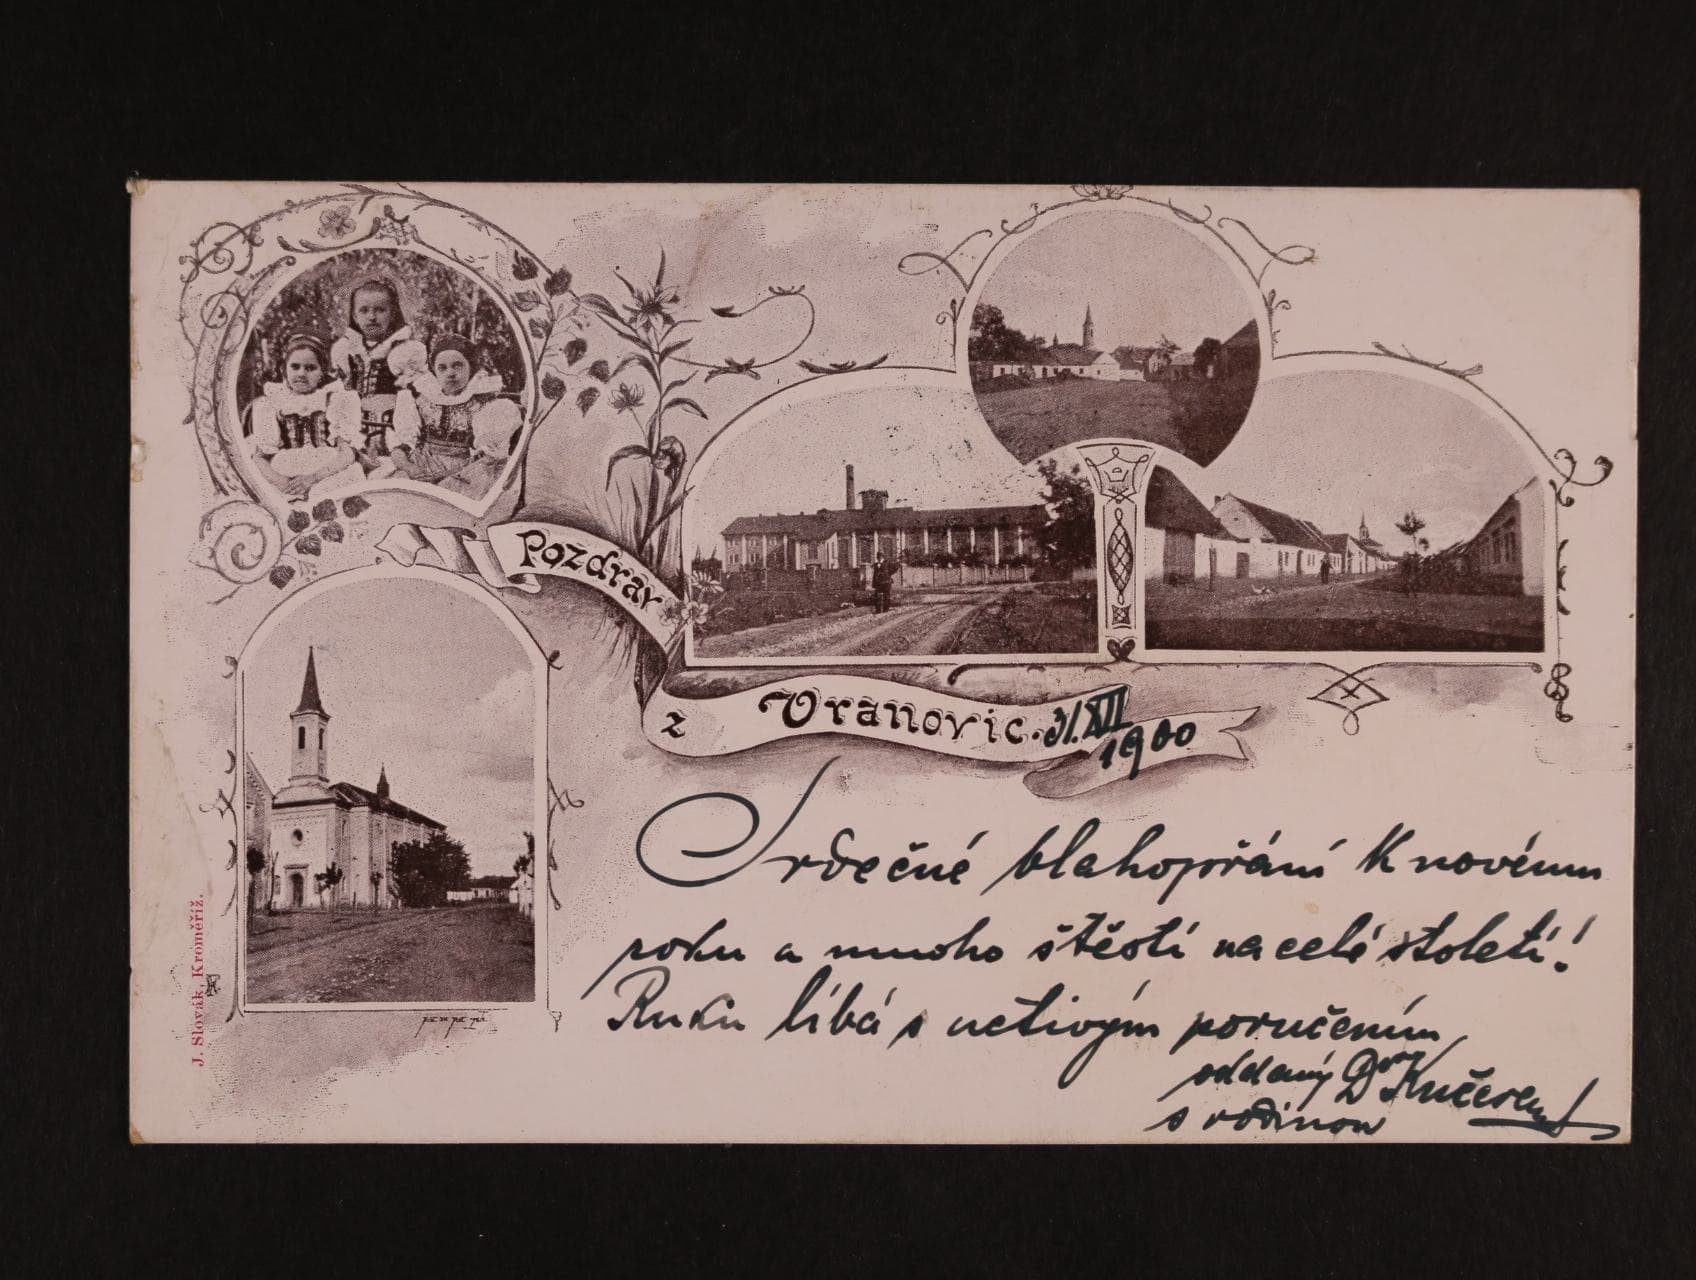 Pozdrav
z Vranovic.
31. XII
1900
Srdečné blahopřání k novému
roku a mnoho štěstí na celé století!
Ruku líbá s uctivým poručením
oddaný Dr Kučera
s rodinou
J. Slovák, Kroměříž.